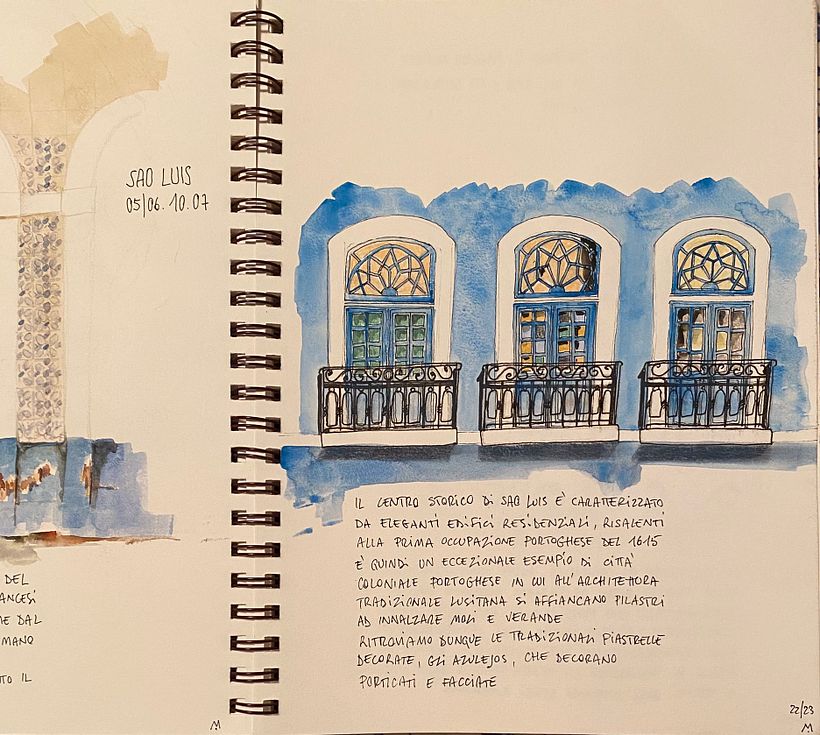 SAO LUIS
05/06.10.07
DEL
ANCESI
ME DAL
MANO
TO IL
M
IL CENTRO STORICO DI SAO LUIS E' CARATTERIZZATO
DA ELEGANTI EDIFICI RESIDENZIALI, RISALENTI
ALLA PRIMA OCCUPAZIONE PORTOGHESE DEL 1615
E' QUINDI UN ECCEZIONALE ESEMPIO DI CITTÀ
COLONIALE PORTOGHESE IN CUI ALL'ARCHITETTURA
TRADIZIONALE LUSITANA SI AFFIANCANO PILASTRI
AD INNALZARE MOLI E VERANDE
RITROVIAMO DUNQUE LE TRADIZIONALI PIASTRELLE
DECORATE, GLI AZULEJOS, CHE DECORANO
PORTICATI E FACCIATE
22/23
M